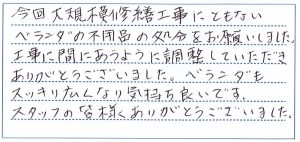 今回大規模修繕工事にともない
ベランダの不用品の処分をお願いしました。
工事に間にあうように調整していただき
ありがとうございました。ベランダも
スッキリ広くなり気持ち良いです。
スタッフの皆様、ありがとうございました。